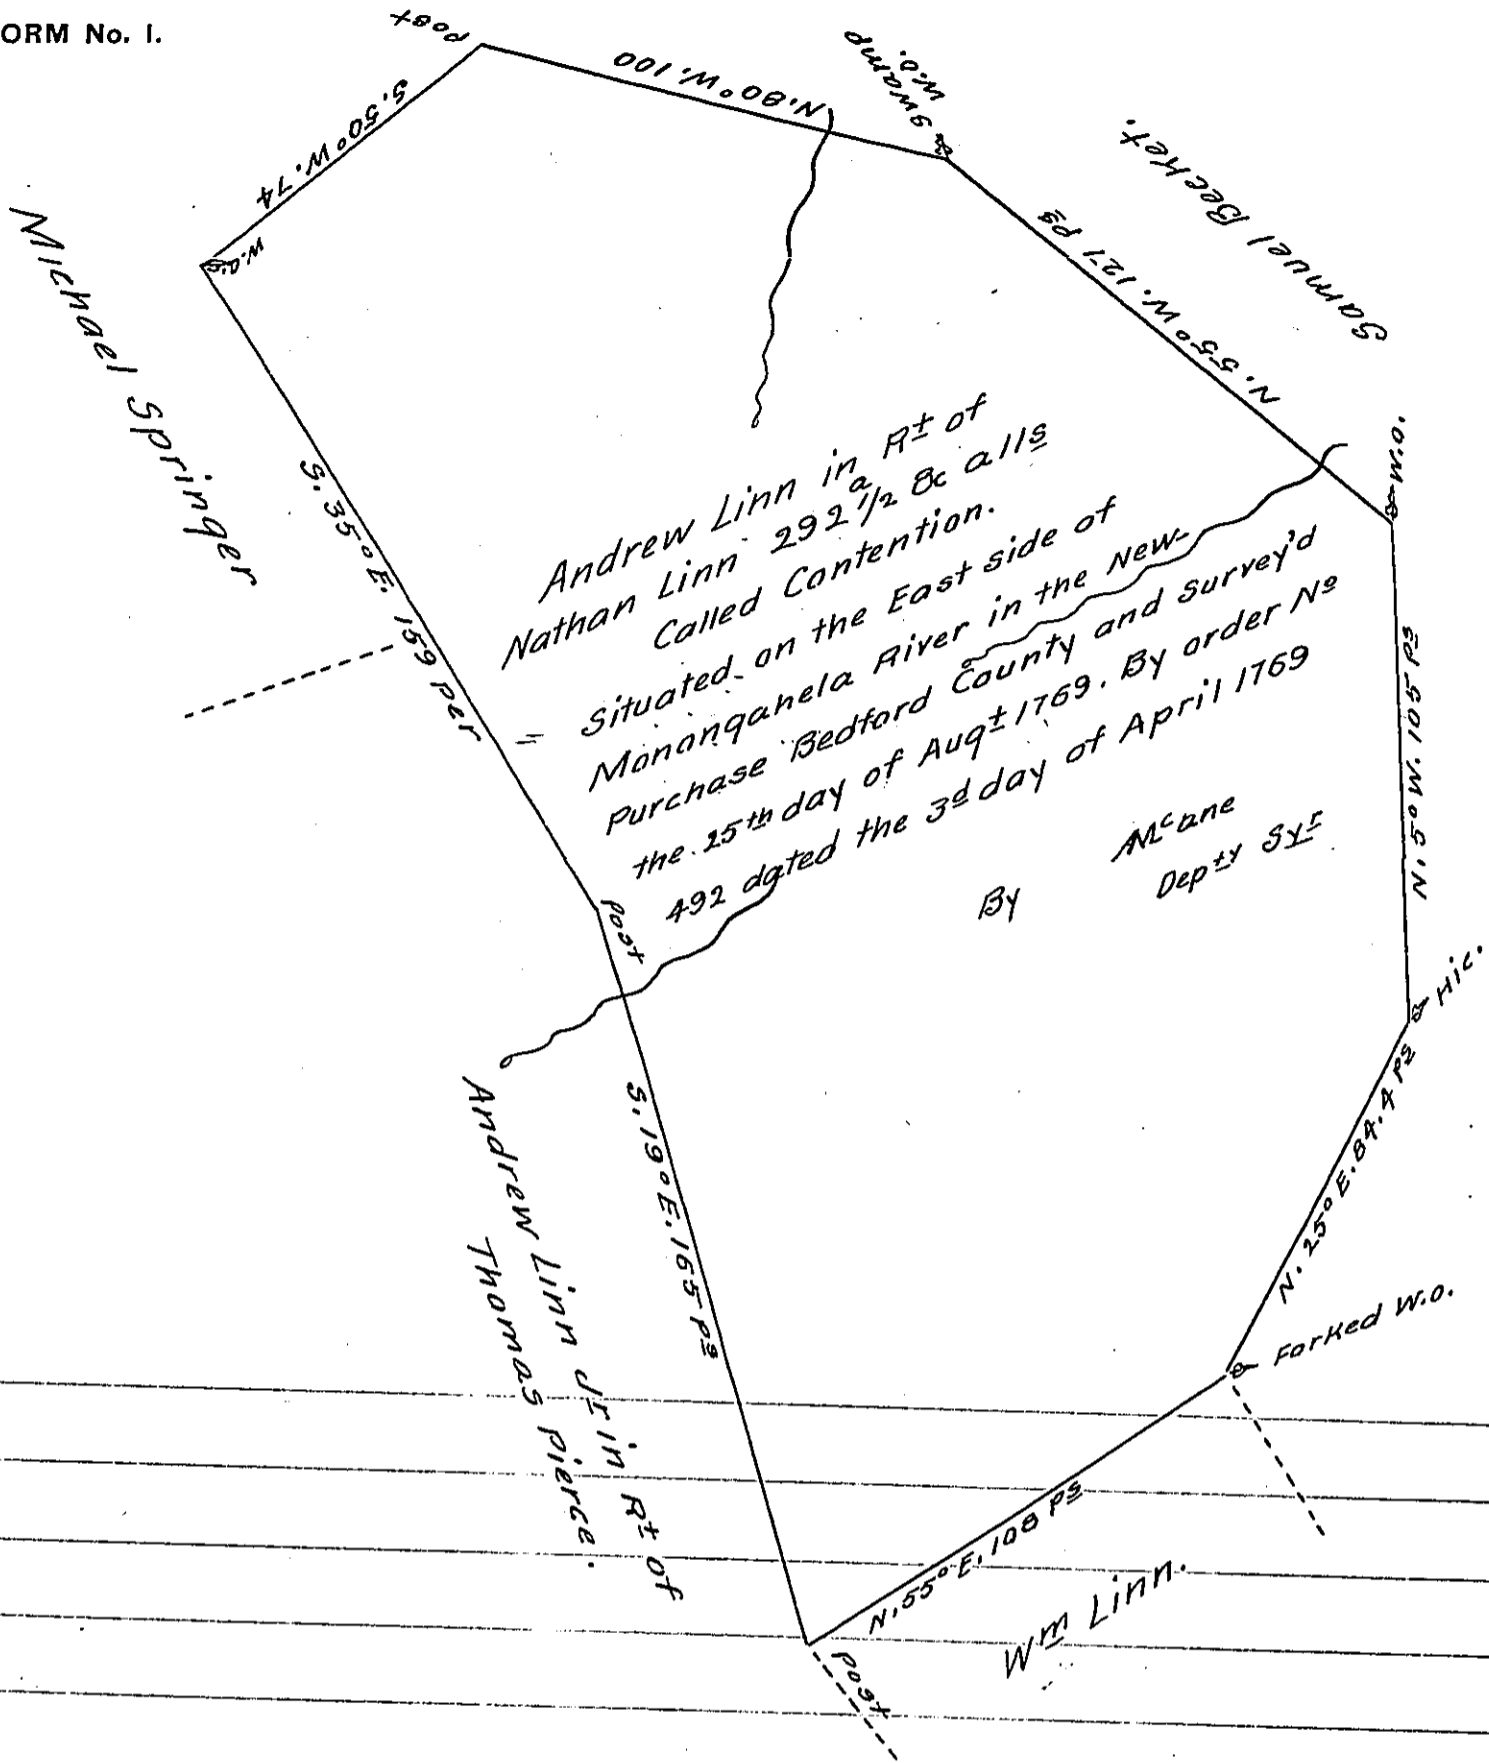 ORM No. 1.
Post
N. 80° W. 100
swamp
W.O.
Samuel Becket.
S. 50° W. 74
W.O.s
Michael Springer
N. 55° W. 127 Ps
W.O.
S. 35° E. 159 Per
Andrew Linn in Rt of
Nathan Linn 292 a 1/2 &c alls
Called Contention.
Situated on the East side of
Mononqahela River in the New-
Purchase Bedford County and Survey'd
the 25th day of Augt 1769. By order No
492 dated the 3d day of April 1769
By
McLane
Depty Syr
N. 5° W. 105 Ps
Post
Hic.
N. 25° E. 84.4 Ps
S. 19° E. 165 Ps
Andrew Linn Jr in Rt of
Thomas Pierce.
Forked W.O.
N. 55° E. 108 Ps
Wm Linn.
Post